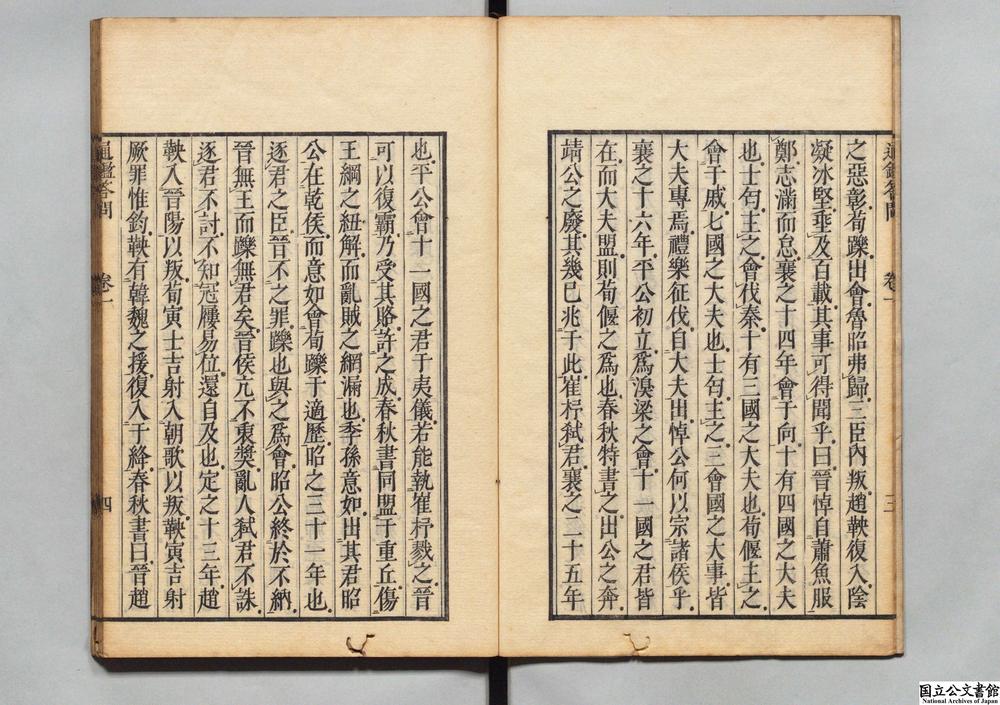 之惡彰荀躒出會魯昭弗歸三臣內叛趙鞅復入陰
凝冰堅垂及百載其事可得聞乎曰晉悼自蕭魚服
鄭志滿而怠襄之十四年會于向十有四國之大夫
也士匄主之會伐秦十有三國之大夫也荀偃主之
會于戚七國之大夫也士匄主之三會國之大事皆
大夫專焉禮樂征伐自大夫出悼公何以宗諸侯乎
襄之十六年平公初立為湨梁之會十一國之君皆
在而大夫盟則荀偃之為也春秋特書之出公之奔
靖公之廢其幾已兆于此崔杼弒君襄之二十五年
通鑑答問 卷一 三
也平公會十一國之君于夷儀若能執崔杼戮之晉
可以復霸乃受其賂許之成春秋書同盟于重丘傷
王綱之紐解而亂賊之網漏也季孫意如出其君昭
公在乾侯而意如會荀躒于適歷昭之三十一年也
逐君之臣晉不之罪躒也與之為會昭公終於不納
晉無王而躒無君矣晉侯亢不衷獎亂人弒君不誅
逐君不討不知冠屨易位還自及也定之十三年趙
鞅入晉陽以叛荀寅士吉射入朝歌以叛鞅寅吉射
厥罪惟鈞鞅有韓魏之援復入于絳春秋書曰晉趙
通鑑答問 卷一 四
国立公文書館
National Archives of Japan